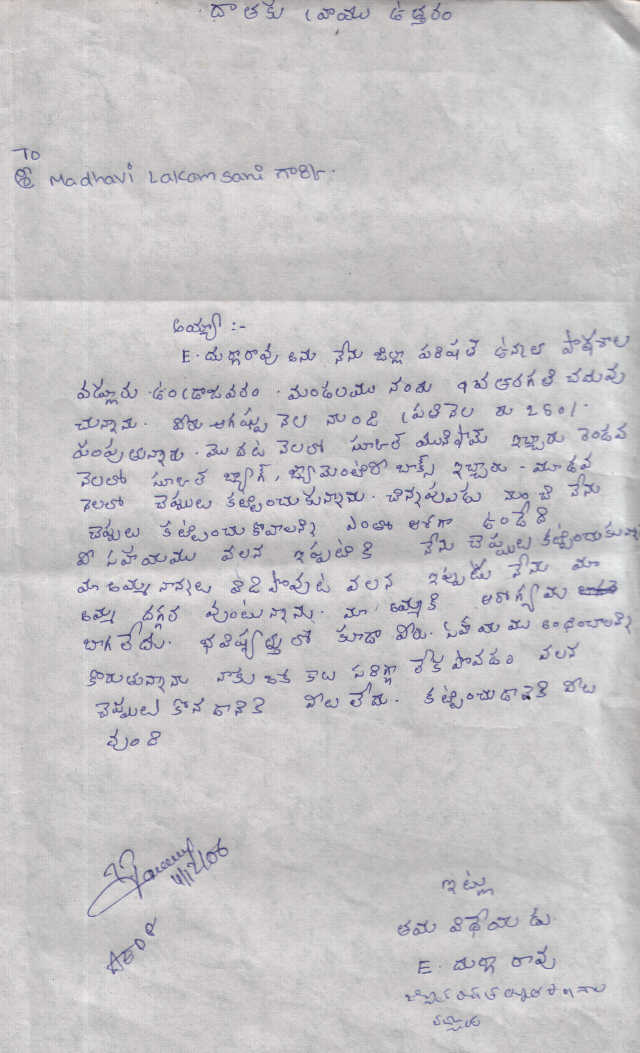 దాతకు వ్రాయు ఉత్తరం
To
శ్రీ Madhavi Lakamsani గారికి.
అయ్యా :-
E. దుర్గారావు అను నేను జిల్లా పరిషత్ ఉన్నత పాఠశాల
వడ్లూరు. ఉండ్రాజవరం. మండలము నందు 9వ తరగతి చదువు
చున్నాను. మీరు ఆగష్టు నెల నుండి ప్రతినెల రు 250/-
పంపుతున్నారు. మొదట నెలలో స్కూల్ యునిఫామ్ ఇచ్చారు రెండవ
నెలలో స్కూల్ బ్యాగ్, జ్యామెంటరీ బాక్స్ ఇచ్చారు. మూడవ
నెలలో చెప్పులు కట్టించుకున్నాను. చిన్నప్పుడు నుంచి నేను
చెప్పులు కట్టించుకోవాలని ఎంతో ఆశగా ఉండేది
మీ సహాయము వలన ఇప్పటికి నేను చెప్పులు కట్టించుకున్నా
మా అమ్మ నాన్నలు విడిపోవుట వలన ఇప్పుడు నేను మా
అమ్మ దగ్గర వుంటున్నాను. మా అమ్మకి ఆరోగ్యము
బాగలేదు. భవిష్యత్తులో కూడా మీరు. సహాయము అందించాలని
కోరుతున్నాను నాకు ఒక కాలు సరిగ్గా లేకపోవడం వలన
చెప్పులు కొనడానికి వీలు లేదు. కట్టించుడానికి వీలు
వుంది
11/12/06
ఇట్లు
తమ విధేయుడు
E. దుర్గారావు